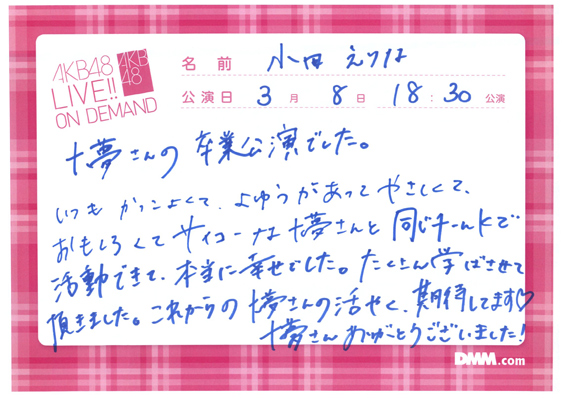 AKB48
LIVE!!
ON DEMAND
AKB
48
名前 小田えりな
公演日 3月8日 18:30公演
十夢さんの卒業公演でした。
いつも かっこよくて、よゆうがあって やさしくて、
おもしろくて サイコーな十夢さんと 同じチームKで
活動できて、本当に幸せでした。たくさん学ばさせて
頂きました。これからの十夢さんの活やく、期待してます♡
十夢さんありがとうございました!
DMM.com